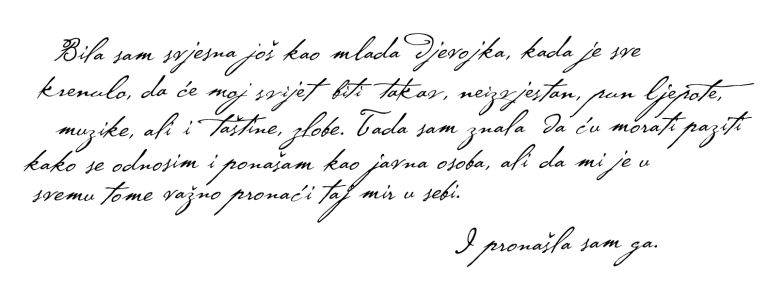 Bila sam svjesna još kao mlada djevojka, kada je sve
krenulo, da će moj svijet biti takav, neizvjestan, pun ljepote,
muzike, ali i taštine, zlobe. Tada sam znala da ću morati paziti
kako se odnosim i ponašam kao javna osoba, ali da mi je u
svemu tome važno pronaći taj mir u sebi.
I pronašla sam ga.